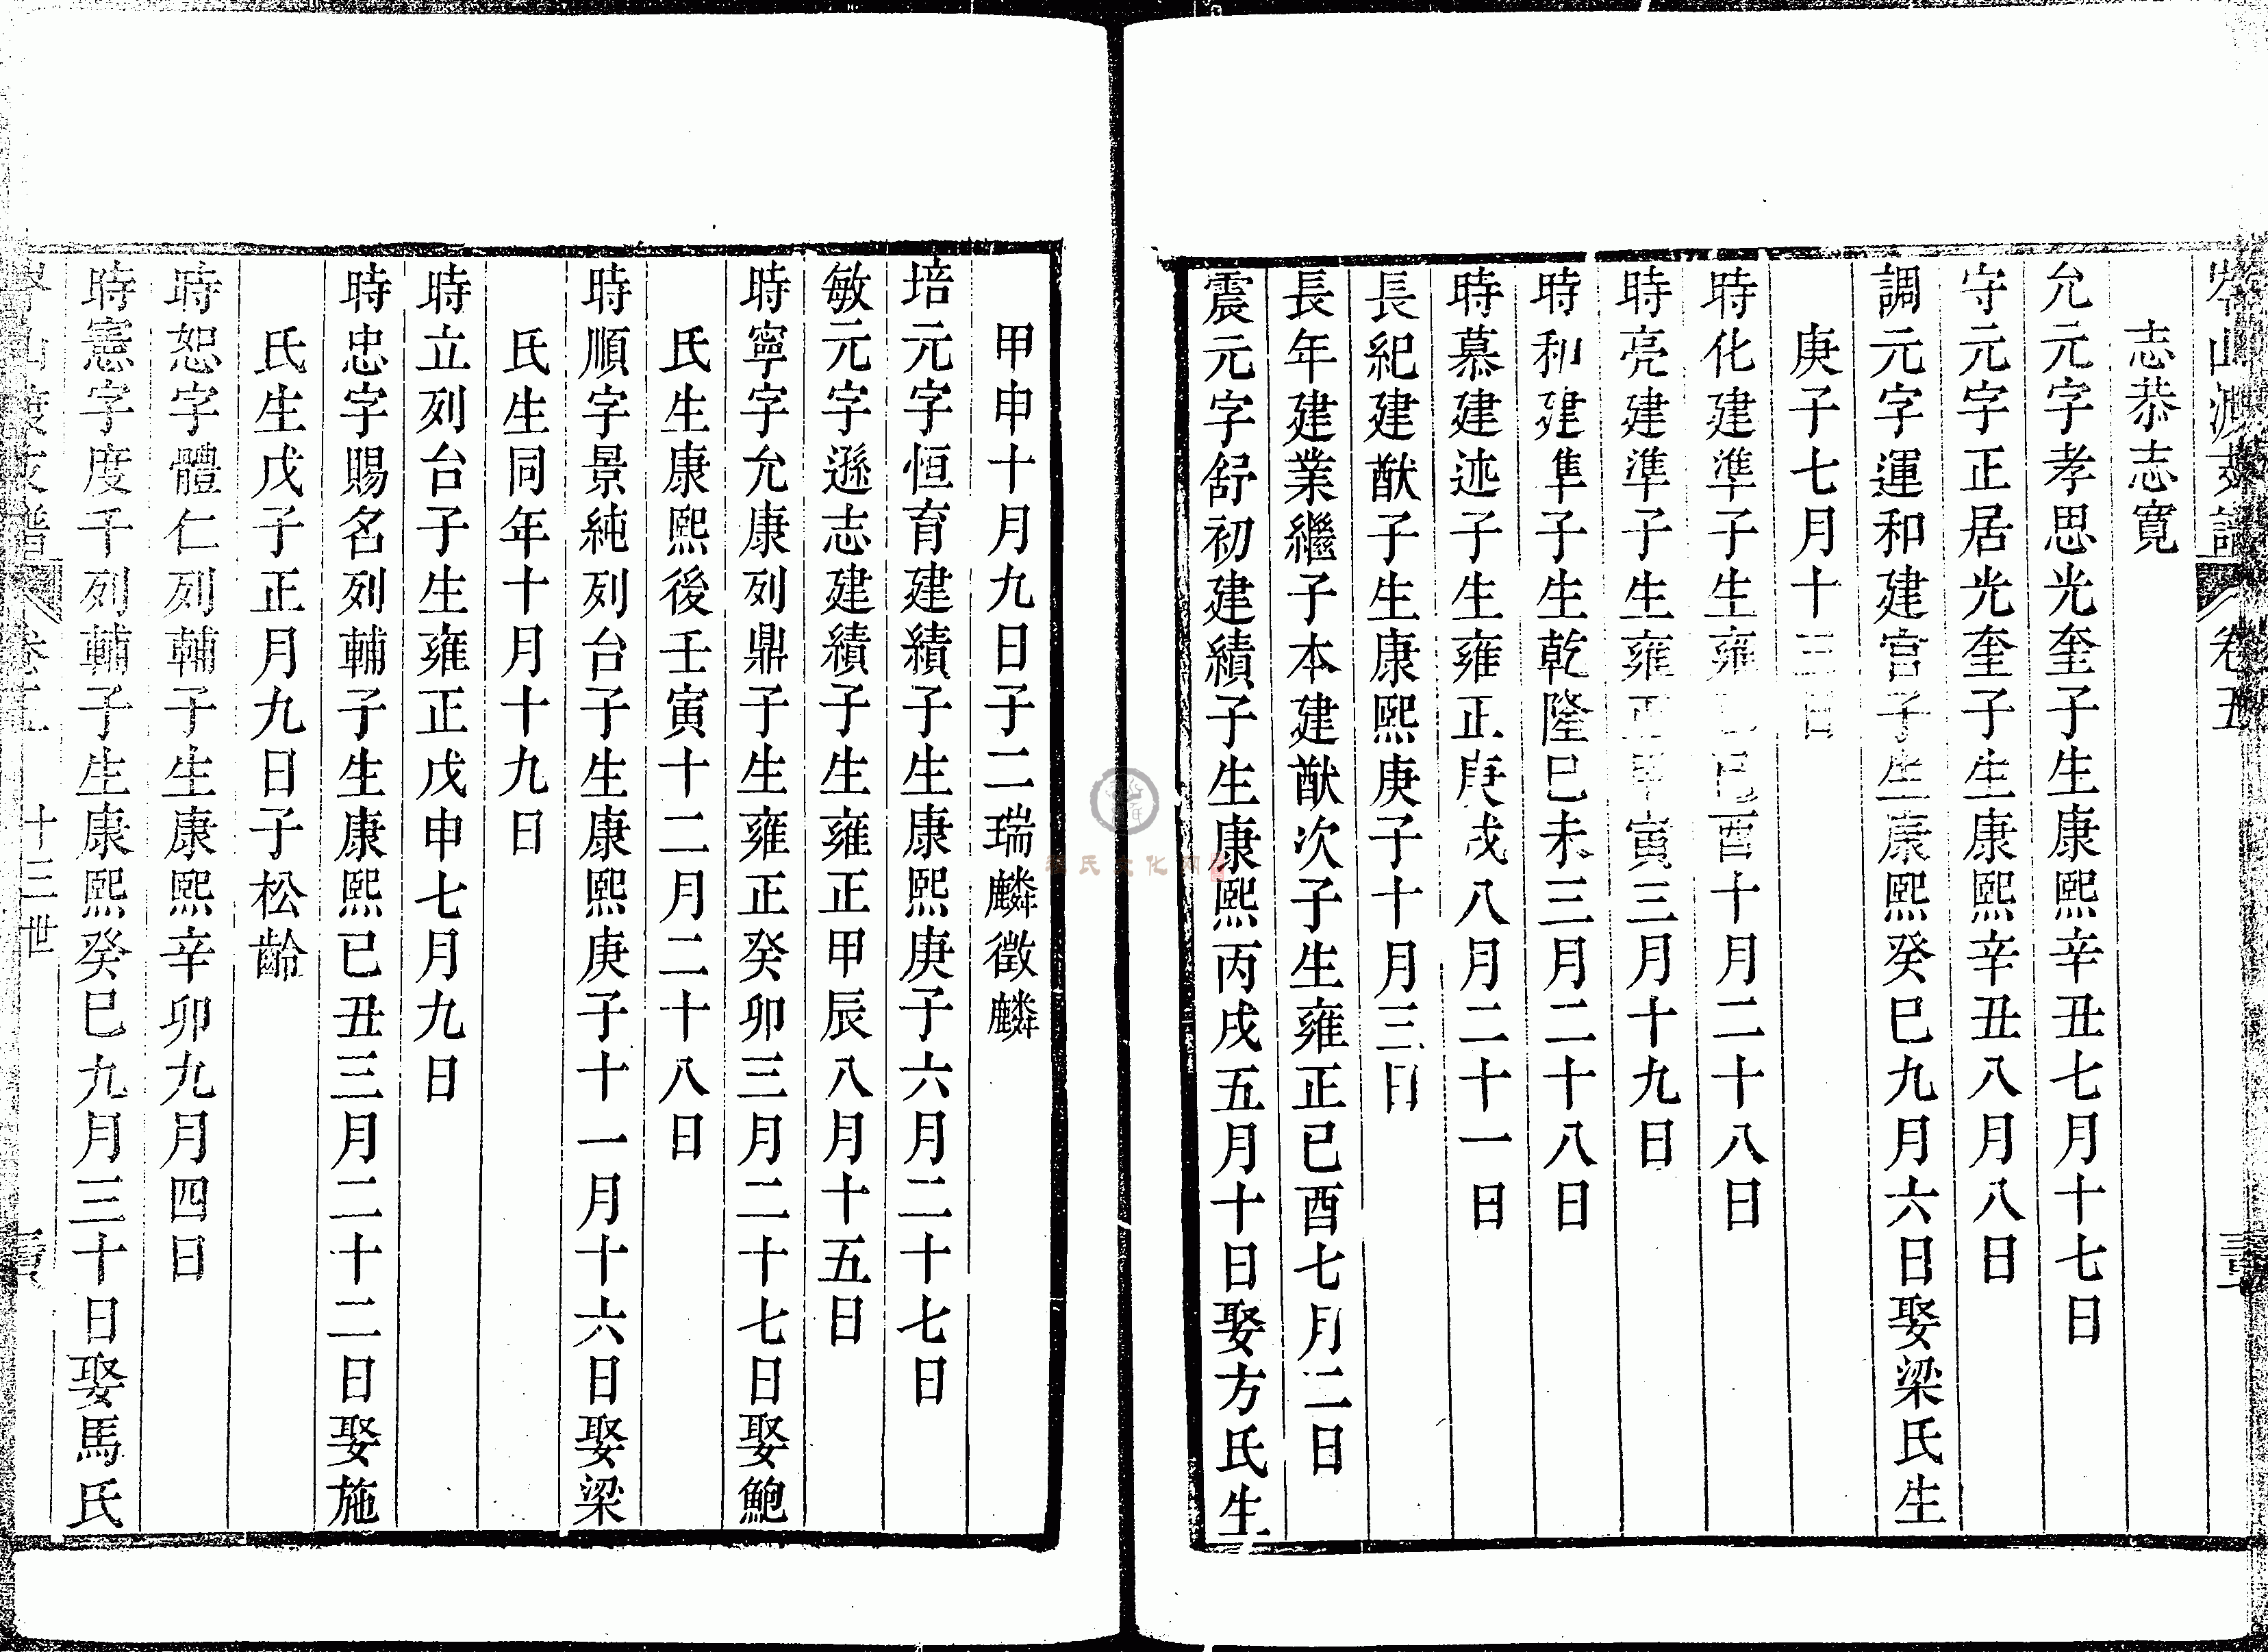 岑山渡支譜 卷五
志恭志寛
允元字孝思光奎子生康熙辛丑七月十七日
守元字正居光奎子生康熙辛丑八月八日
調元字運和建宫子生康熙癸巳九月六日娶梁氏生
庚子七月十三日
時化建準子生雍正己酉十月二十八日
時亮建準子生雍正甲寅三月十九日
時和建準子生乾隆巳未三月二十八日
時慕建述子生雍正庚戌八月二十一日
長紀建猷子生康熙庚子十月三日
長年建業繼子本建猷次子生雍正已酉七月二日
震元字舒初建績子生康熙丙戌五月十日娶方氏生
甲申十月九日子二瑞麟徵麟
培元字恒育建績子生康熙庚子六月二十七日
敏元字遜志建績子生雍正甲辰八月十五日
時寧字允康列鼎子生雍正癸卯三月二十七日娶鮑
氏生康熙後壬寅十二月二十八日
時順字景純列台子生康熙庚子十一月十六日娶梁
氏生同年十月十九日
時立列台子生雍正戊申七月九日
時忠字賜名列輔子生康熙已丑三月二十二日娶施
氏生戊子正月九日子松齡
時恕字體仁列輔子生康熙辛卯九月四日
時憲字度千列輔子生康熙癸巳九月三十日娶馬氏
山渡支譜 卷五 十三世